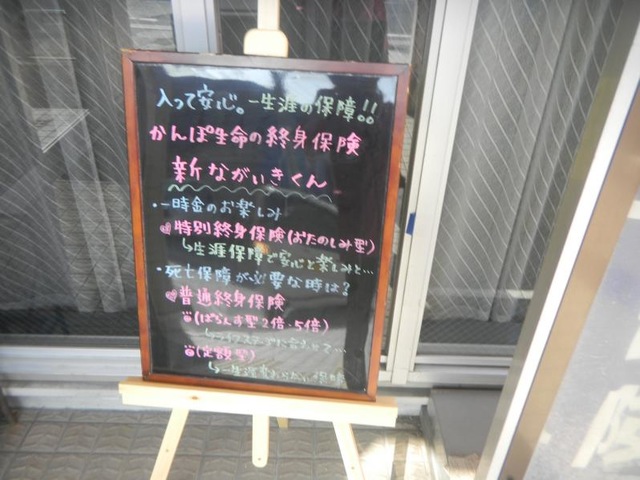 入って安心。一生涯の保障!!
かんぽ生命の終身保険
新ながいきくん
・一時金のお楽しみ
特別終身保険(おたのしみ型)
↳生涯保障で安心と楽しみと…
・死亡保障が必要な時は?
普通終身保険
(ばらんす型2倍・5倍)
↳ライフステージに合わせて…
(定額型)
↳一生涯変わらない保障